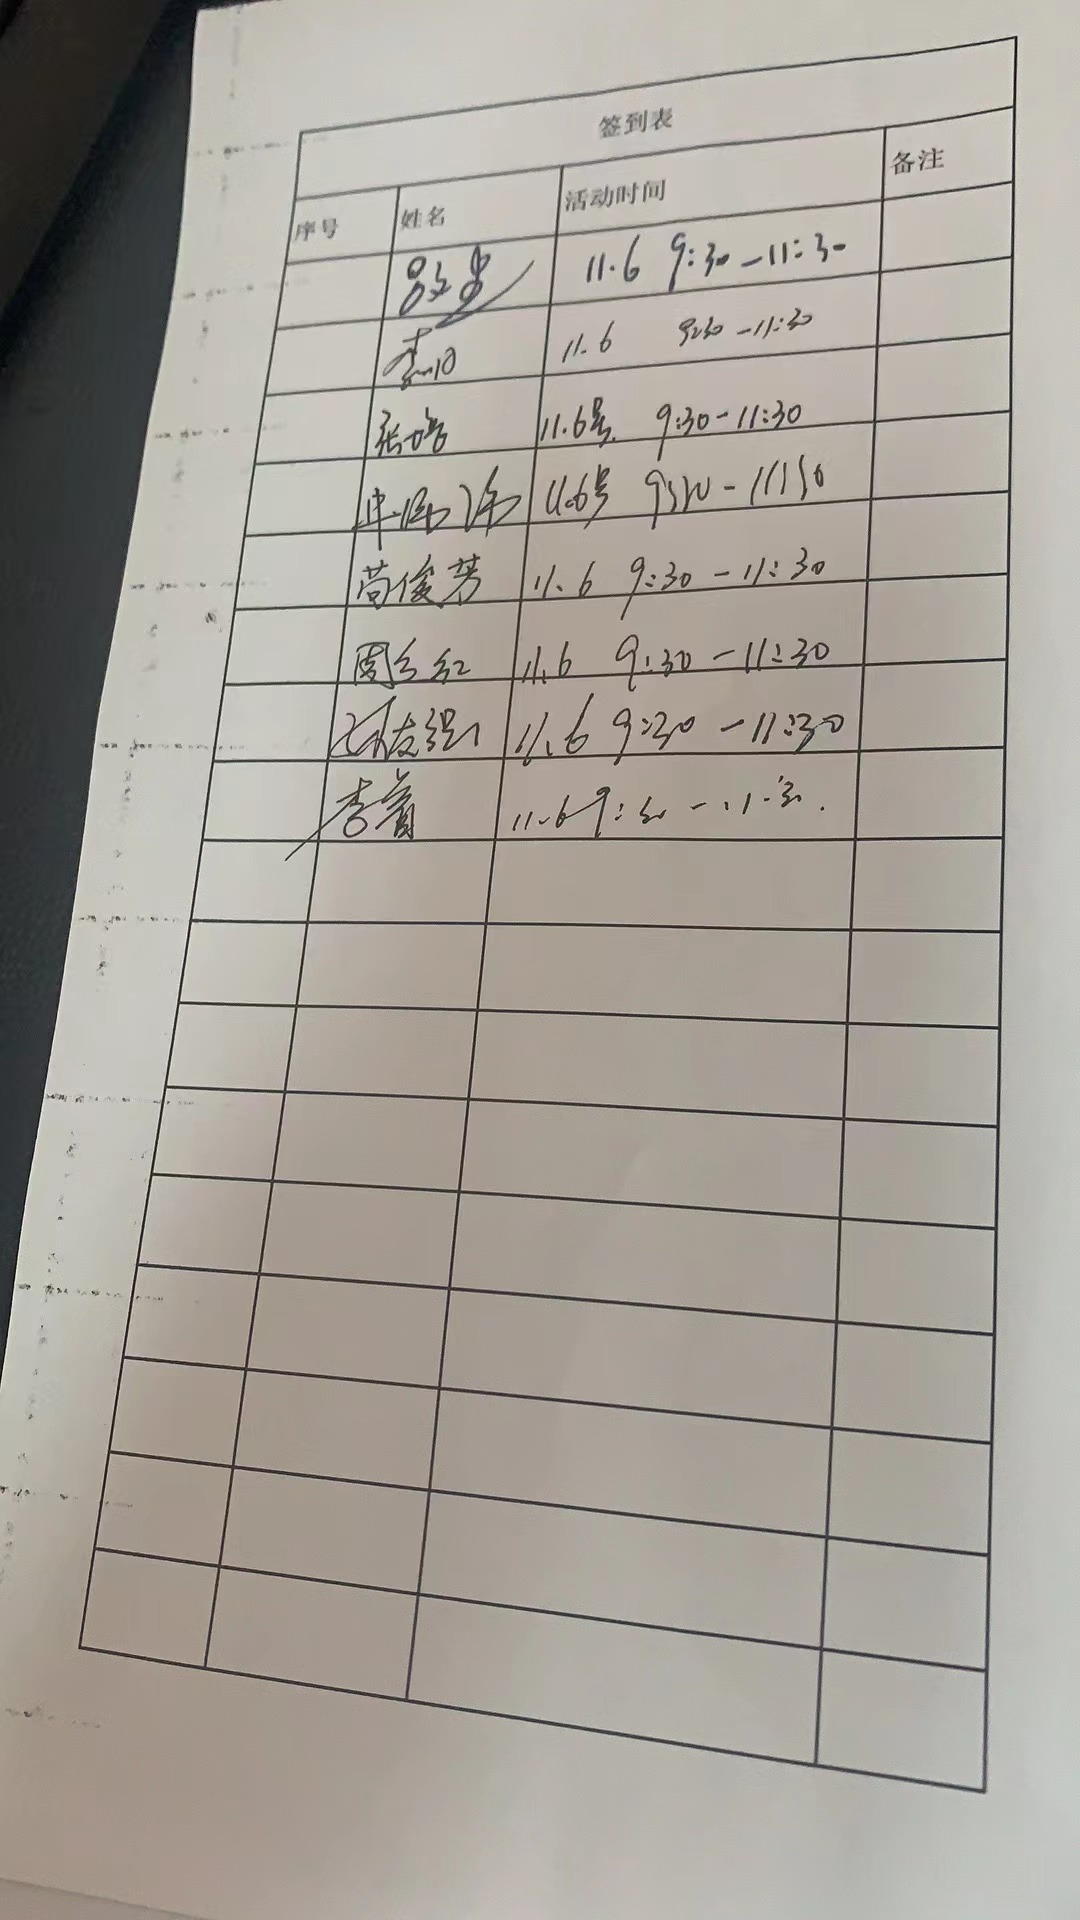 签到表
序号 姓名 活动时间 备注
11.6 9:30-11:30
李 11.6 9:30-11:30
张 11.6号. 9:30-11:30
11.6号
苟俊芳 11.6 9:30-11:30
周 红 11.6 9:30-11:30
11.6 9:30-11:30
李 11.6 9:30-11:30.